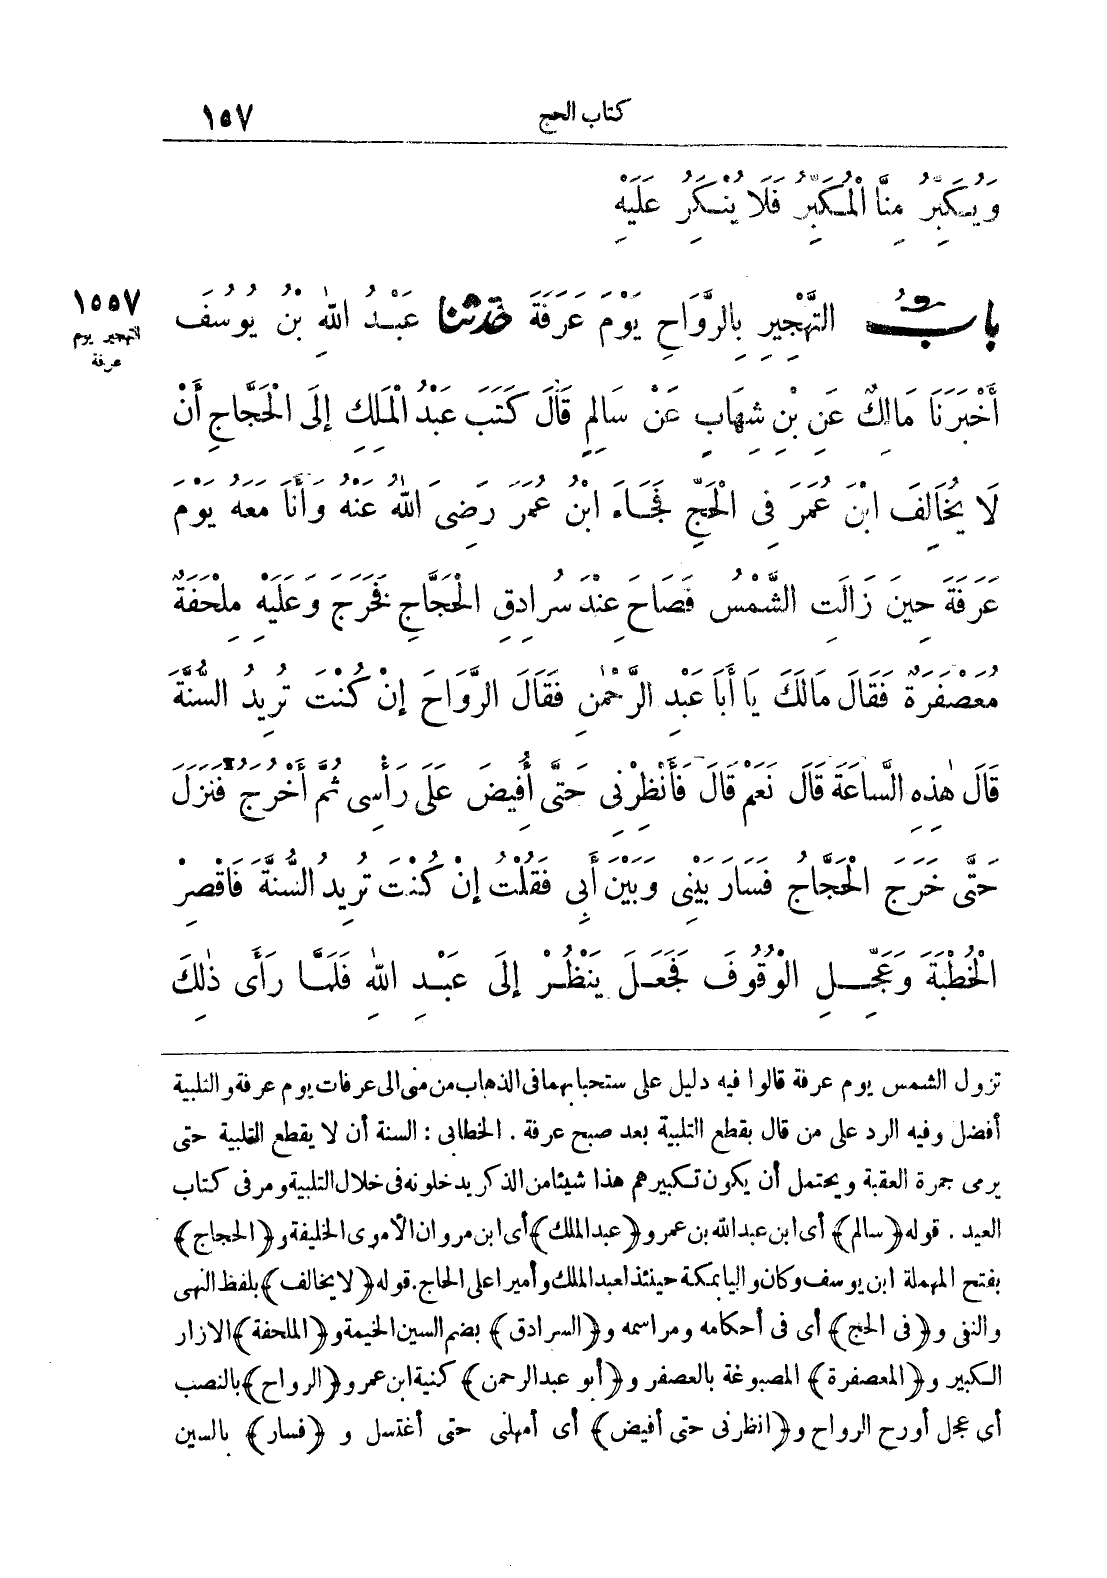 كتاب الحج ١٥٧
وَيُكَبِّرُ مِنَّا الْمُكَبِّرُ فَلَا يُنْكَرُ عَلَيْهِ
بابُ التَّهْجِيرِ بِالرَّوَاحِ يَوْمَ عَرَفَةَ حَدَّثَنَا عَبْدُ اللهِ بْنُ يُوسُفَ
١٥٥٧
التهجير يوم
عرفة
أَخْبَرَنَا مَالِكٌ عَنِ بْنِ شِهَابٍ عَنْ سَالِمٍ قَالَ كَتَبَ عَبْدُ الْمَلِكِ إِلَى الْحَجَّاجِ أَنْ
لَا يُخَالِفَ ابْنَ عُمَرَ فِى الْحَجِّ فَجَاءَ ابْنُ عُمَرَ رَضِىَ اللهُ عَنْهُ وَأَنَا مَعَهُ يَوْمَ
عَرَفَةَ حِينَ زَالَتِ الشَّمْسُ فَصَاحَ عِنْدَ سُرَادِقِ الْحَجَّاجِ فَخَرَجَ وَعَلَيْهِ مِلْحَفَةٌ
مُعَصْفَرَةٌ فَقَالَ مَالَكَ يَا أَبَا عَبْدِ الرَّحْمٰنِ فَقَالَ الرَّوَاحَ إِنْ كُنْتَ تُرِيدُ السُّنَّةَ
قَالَ هٰذِهِ السَّاعَةَ قَالَ نَعَمْ قَالَ فَأَنْظِرْنِى حَتَّى أُفِيضَ عَلَى رَأْسِى ثُمَّ أَخْرُجُ فَنَزَلَ
حَتَّى خَرَجَ الْحَجَّاجُ فَسَارَ بَيْنِى وَبَيْنَ أَبِى فَقُلْتُ إِنْ كُنْتَ تُرِيدُ السُّنَّةَ فَاقْصِرْ
الْخُطْبَةَ وَعَجِّلِ الْوُقُوفَ فَجَعَلَ يَنْظُرُ إِلَى عَبْدِ اللهِ فَلَمَّا رَأَى ذٰلِكَ
تزول الشمس يوم عرفة قالوا فيه دليل على ستحبابهما فى الذهاب من منى الى عرفات يوم عرفة والتلبية
أفضل وفيه الرد على من قال بقطع التلبية بعد صبح عرفة . الخطابى : السنة أن لا يقطع التلبية حتى
يرمى جمرة العقبة ويحتمل أن يكون تكبيرهم هذا شيئا من الذكر يدخلونه فى خلال التلبية ومر فى كتاب
العيد . قوله ﴿سالم﴾ أى ابن عبد الله بن عمر و﴿عبد الملك﴾ أى ابن مروان الأموى الخليفة و﴿الحجاج﴾
بفتح المهملة ابن يوسف وكان واليا بمكة حينئذ لعبد الملك وأميرا على الحاج. قوله ﴿لا يخالف﴾ بلفظ النهى
والنفى و﴿فى الحج﴾ أى فى أحكامه ومراسمه و﴿السرادق﴾ بضم السين الخيمة و﴿الملحفة﴾ الازار
الكبير و﴿المعصفرة﴾ المصبوغة بالعصفر و﴿أبو عبد الرحمن﴾ كنية ابن عمر و﴿الرواح﴾ بالنصب
أى عجل أو رح الرواح و﴿انظرنى حتى أفيض﴾ أى أمهلنى حتى أغتسل و ﴿فسار﴾ بالسين